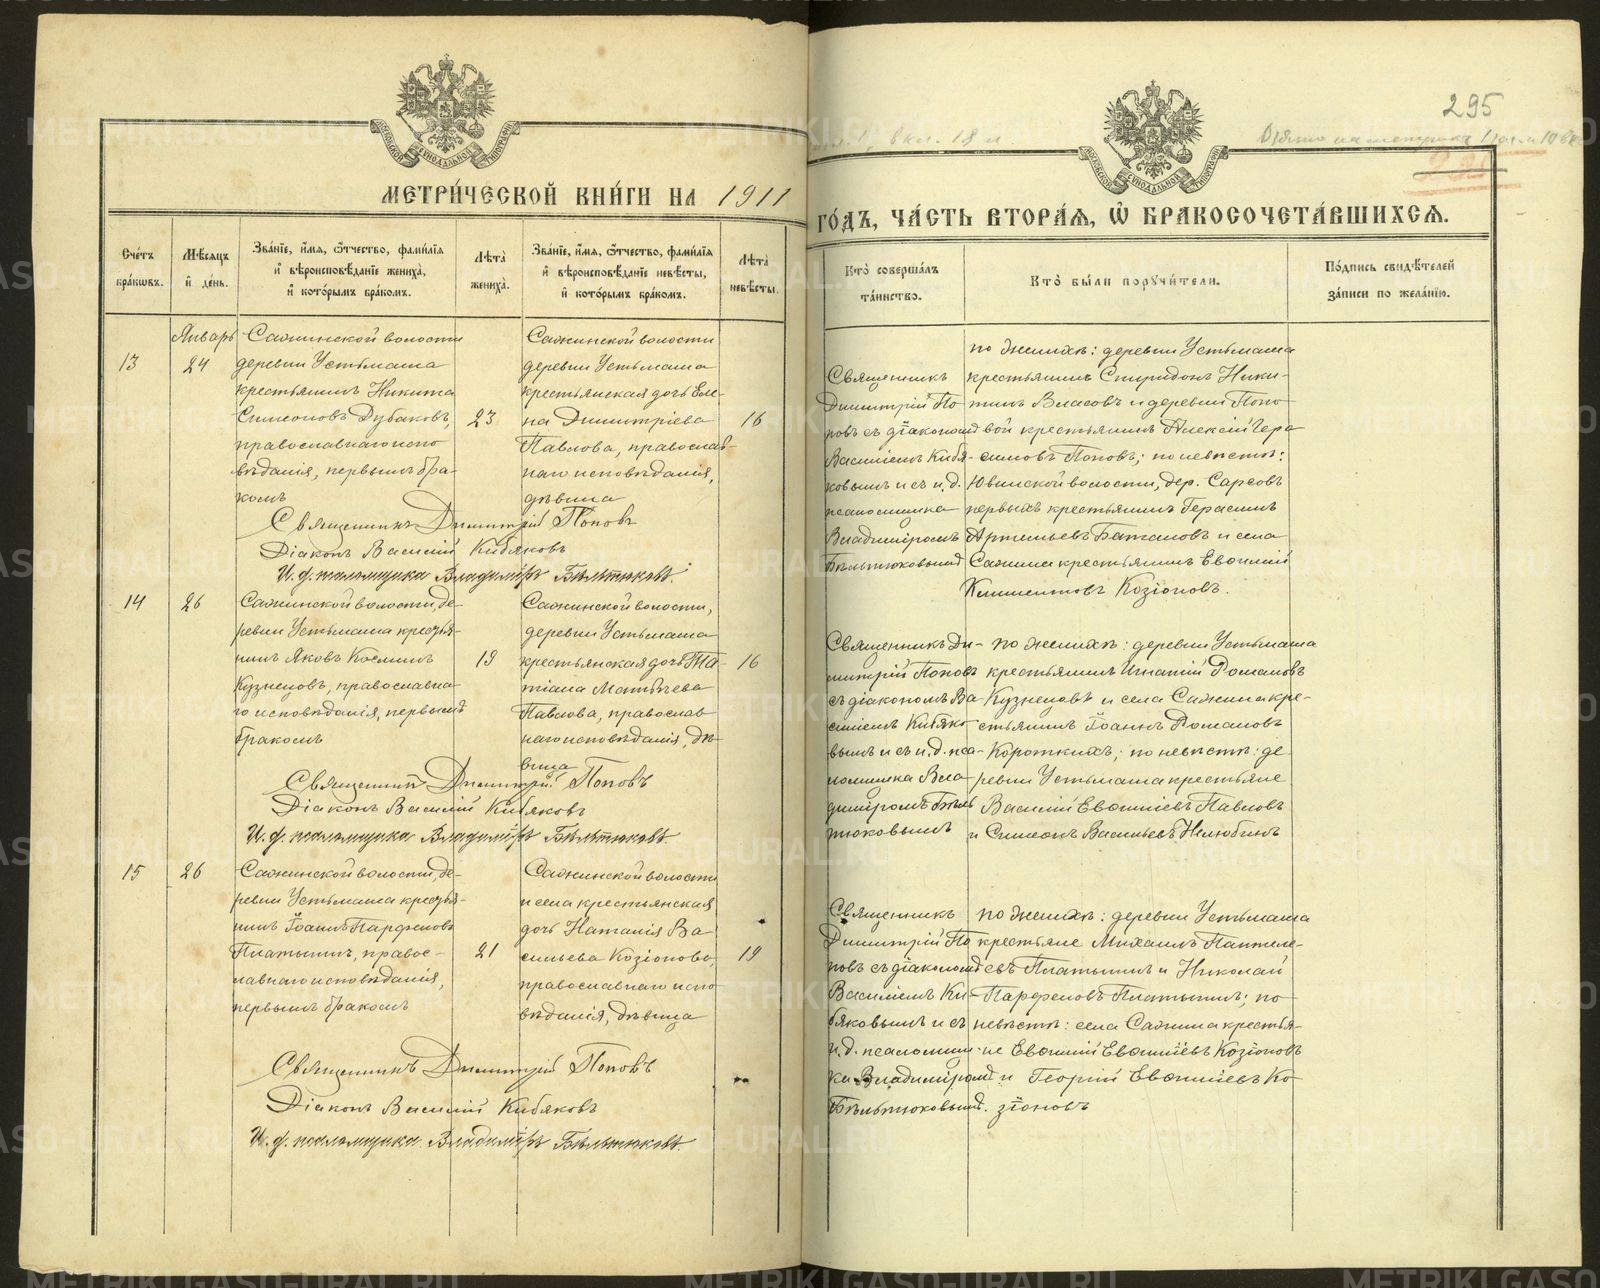 295
МЕТРИ́ЧЕСКОЙ КНИ́ГИ НА 1911
ГО́ДЪ, ЧА́СТЬ ВТОРА́Я, Ѽ БРАКОСОЧЕТА́ВШИХСЯ.
Сче́тъ бра́ковъ.
Мѣ́сяцъ и҆ де́нь.
Зва́нїе, и҆́мя, ѻ҆́тчество, фами́лїя
и҆ вѣроисповѣ́данїе жениха̀,
и҆ кото́рымъ бра́комъ.
Лѣта̀ жениха̀.
Зва́нїе, и҆́мя, ѻ҆́тчество, фами́лїя
и҆ вѣроисповѣ́данїе невѣ́сты,
и҆ кото́рымъ бра́комъ.
Лѣта̀ невѣ́сты.
Кто̀ соверша́лъ та́инство.
Кто̀ бы́ли поручи́тели.
По́дпись свидѣ́телей
за́писи по жела́нїю.
13
Январь
24
Сажинской волости
деревни Устьмаша
крестьянинъ Никита
Симеоновъ Дубаковъ,
православнаго испо
вѣданія, первымъ бра-
комъ
23
Сажинской волости
деревни Устьмаша
крестьянская дочь Еле-
на Димитріева
Павлова, православ-
наго исповѣданія,
дѣвица
16
Священникъ
Димитрій По
повъ съ діакономъ
Василіемъ Кибя-
ковымъ и съ и. д.
псаломщика
Владиміромъ
Бѣльтюковымъ
по женихѣ: деревни Устьмаша
крестьянинъ Спиридонъ Ники-
тинъ Власовъ и деревни Попо
вой крестьянинъ Алексій Гера
симовъ Поповъ; по невѣстѣ:
Ювинской волости, дер. Сарсовъ
первыхъ крестьянинъ Герасимъ
Артемьевъ Баталовъ и села
Сажина крестьянинъ Евѳимій
Климентовъ Козіоновъ.
Священникъ Димитрій Поповъ
Діаконъ Василій Кибяковъ
И. ф. псаломщика Владиміръ Бѣльтюковъ.
14
26
Сажинской волости, де-
ревни Устьмаша крестья-
нинъ Яковъ Косминъ
Кузнецовъ, православна-
го исповѣданія, первымъ
бракомъ
19
Сажинской волости,
деревни Устьмаша
крестьянская дочь Та-
тіана Матѳіева
Павлова, православ
наго исповѣданія, дѣ-
вица
16
Священникъ Ди-
митрій Поповъ
съ діакономъ Ва-
силіемъ Кибяко
вымъ и съ и. д. пса-
ломщика Вла-
диміромъ Бѣль
тюковымъ
по женихѣ: деревни Устьмаша
крестьянинъ Игнатій Романовъ
Кузнецовъ и села Сажина кре-
стьянинъ Іоаннъ Романовъ
Короткихъ; по невѣстѣ: де
ревни Устьмаша крестьяне
Василій Евѳиміевъ Павловъ
и Симеонъ Васильевъ Нелюбинъ
Священникъ Димитрій Поповъ
Діаконъ Василій Кибяковъ
И. ф. псаломщика Владиміръ Бѣльтюковъ.
15
26
Сажинской волости, де-
ревни Устьмаша крестья-
нинъ Іоаннъ Парѳеновъ
Платынинъ, правос-
лавнаго исповѣданія,
первымъ бракомъ
21
Сажинской волости
и села крестьянская
дочь Наталія Ва
сильева Козіонова,
православнаго испо
вѣданія, дѣвица
19
Священникъ
Димитрій По
повъ съ діакономъ
Василіемъ Ки-
бяковымъ и съ
и. д. псаломщи-
ка Владиміромъ
Бѣльтюковымъ.
по женихѣ: деревни Устьмаша
крестьяне Михаилъ Пантеле-
евъ Платынинъ и Николай
Парѳеновъ Платынинъ; по
невѣстѣ: села Сажина крестья-
не Евѳимій Евѳиміевъ Козіоновъ
и Георгій Евѳиміевъ Ко
зіоновъ
Священникъ Димитрій Поповъ
Діаконъ Василій Кибяковъ
И. ф. псаломщика Владиміръ Бѣльтюковъ.
METRIKI.GASO-URAL.RU